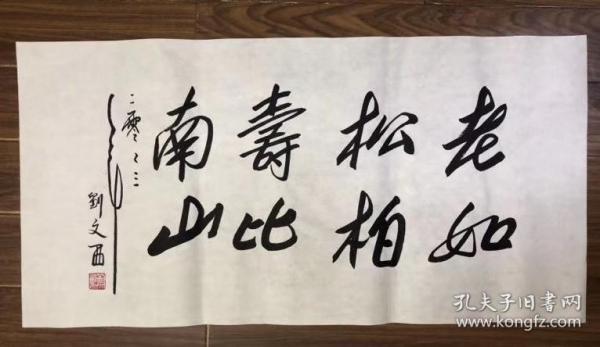 老如
松柏
壽比
南山
二零く三
年
劉文西
孔夫子旧書网
www.kongfz.com